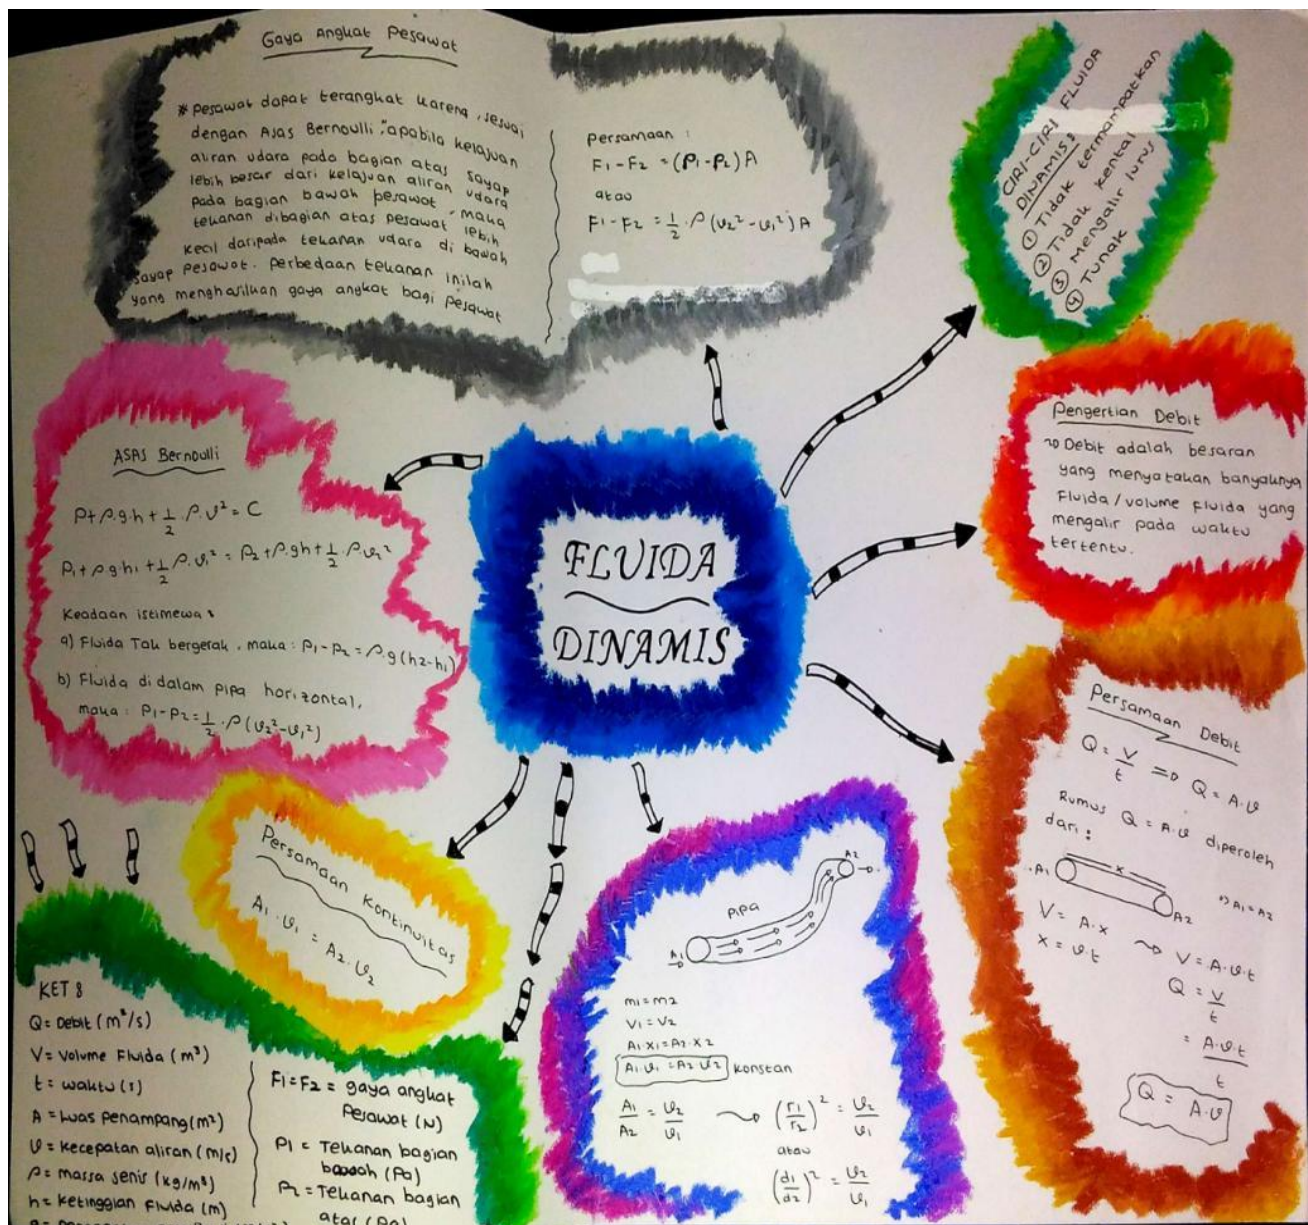 Gaya Angkat Pesawat
* Pesawat dapat terangkat karena, sesuai
dengan Asas Bernoulli, "apabila kelajuan
aliran udara pada bagian atas sayap
lebih besar dari kelajuan aliran udara
pada bagian bawah pesawat maka
tekanan dibagian atas pesawat lebih
kecil daripada tekanan udara di bawah
sayap pesawat. Perbedaan tekanan inilah
yang menghasilkan gaya angkat bagi pesawat
Persamaan :
F1 - F2 = (P1 - P2) A
atau
F1 - F2 = 1/2 · ρ (v2² - v1²) A
CIRI-CIRI FLUIDA
DINAMIS :
① Tidak termampatkan
② Tidak kental
③ Mengalir lurus
④ Tunak
Pengertian Debit
Debit adalah besaran
yang menyatakan banyaknya
Fluida/volume Fluida yang
mengalir pada waktu
tertentu.
ASAS Bernoulli
P + ρ.g.h + 1/2 . ρ. v² = C
P1 + ρ g h1 + 1/2 ρ. v1² = P2 + ρ.gh + 1/2 . ρ.v2²
Keadaan istimewa :
a) Fluida Tak bergerak, maka : P1 - P2 = ρ.g (h2-h1)
b) Fluida di dalam pipa horizontal,
maka : P1 - P2 = 1/2 · ρ (v2² - v1²)
FLUIDA
DINAMIS
Persamaan Debit
Q = V/t => Q = A·v
Rumus Q = A·v diperoleh
dari :
A1 x A2
=> A1 = A2
V = A·x ~> V = A·v·t
x = v·t
Q = V/t
= A·v·t/t
Q = A·v
Persamaan Kontinuitas
A1 · v1 = A2 · v2
pipa
A1
A2
m1 = m2
V1 = V2
A1·x1 = A2·x2
A1·v1 = A2·v2 konstan
A1/A2 = v2/v1 ~> (r1/r2)² = v2/v1
atau
(d1/d2)² = v2/v1
KET :
Q = Debit (m³/s)
V = Volume Fluida (m³)
t = waktu (s)
A = Luas penampang (m²)
v = kecepatan aliran (m/s)
ρ = massa jenis (kg/m³)
h = ketinggian Fluida (m)
F1 = F2 = gaya angkat
Pesawat (N)
P1 = Tekanan bagian
bawah (Pa)
P2 = Tekanan bagian
atas (Pa)